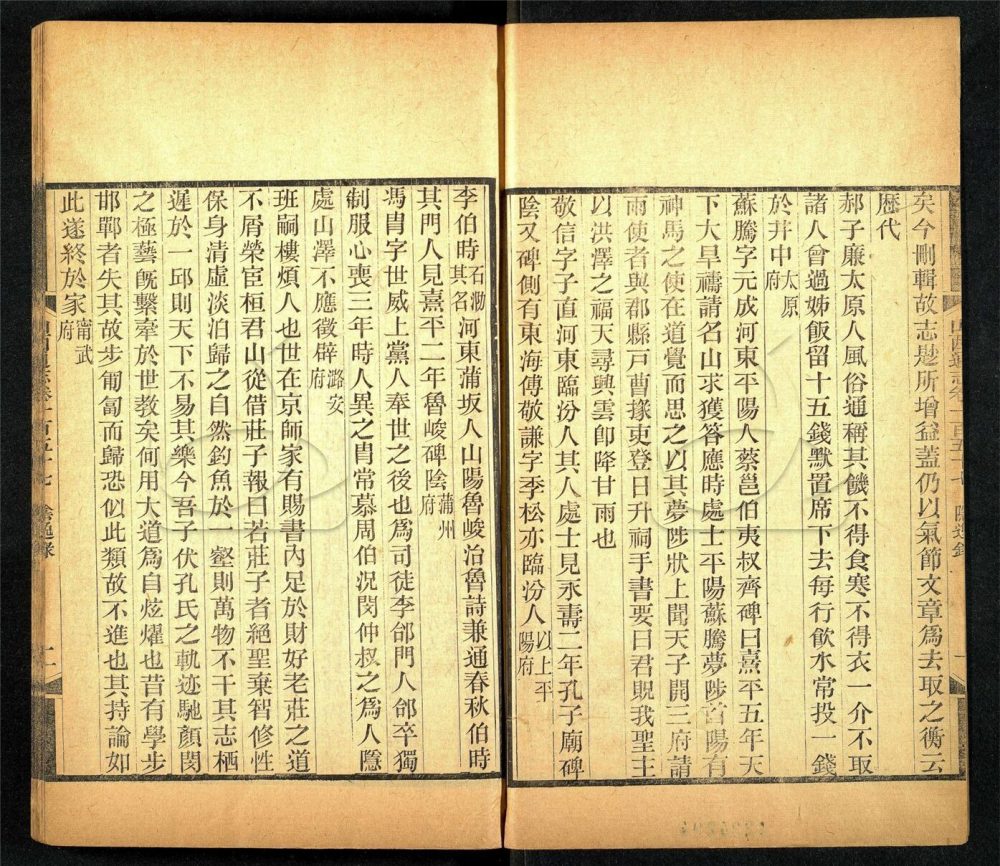 矣今刪輯故志尟所增益蓋仍以氣節文章爲去取之衡云
歷代
郝子廉太原人風俗通稱其饑不得食寒不得衣一介不取
諸人曾過姊飯留十五錢默置席下去每行飲水常投一錢
於井中太原府
蘇騰字元成河東平陽人蔡邕伯夷叔齊碑曰熹平五年天
下大旱禱請名山求獲答應時處士平陽蘇騰夢陟首陽有
神馬之使在道覺而思之以其夢陟狀上聞天子開三府請
雨使者與郡縣戸曹掾吏登日升祠手書要曰君貺我聖主
以洪澤之福天尋興雲卽降甘雨也
敬信字子直河東臨汾人其人處士見永壽二年孔子廟碑
陰又碑側有東海傅敬謙字季松亦臨汾人以上平陽府
李伯時石泐其名河東蒲坂人山陽魯峻治魯詩兼通春秋伯時
其門人見熹平二年魯峻碑陰蒲州府
馮胄字世威上黨人奉世之後也爲司徒李郃門人郃卒獨
制服心喪三年時人異之胄常慕周伯況閔仲叔之爲人隱
處山澤不應徵辟潞安府
班嗣樓煩人也世在京師家有賜書內足於財好老莊之道
不屑榮宦桓君山從借莊子報曰若莊子者絕聖棄智修性
保身清虛淡泊歸之自然釣魚於一壑則萬物不干其志栖
遲於一邱則天下不易其樂今吾子伏孔氏之軌迹馳顏閔
之極藝旣繫攣於世教矣何用大道爲自炫燿也昔有學步
邯鄲者失其故步匍匐而歸恐似此類故不進也其持論如
此遂終於家甯武府